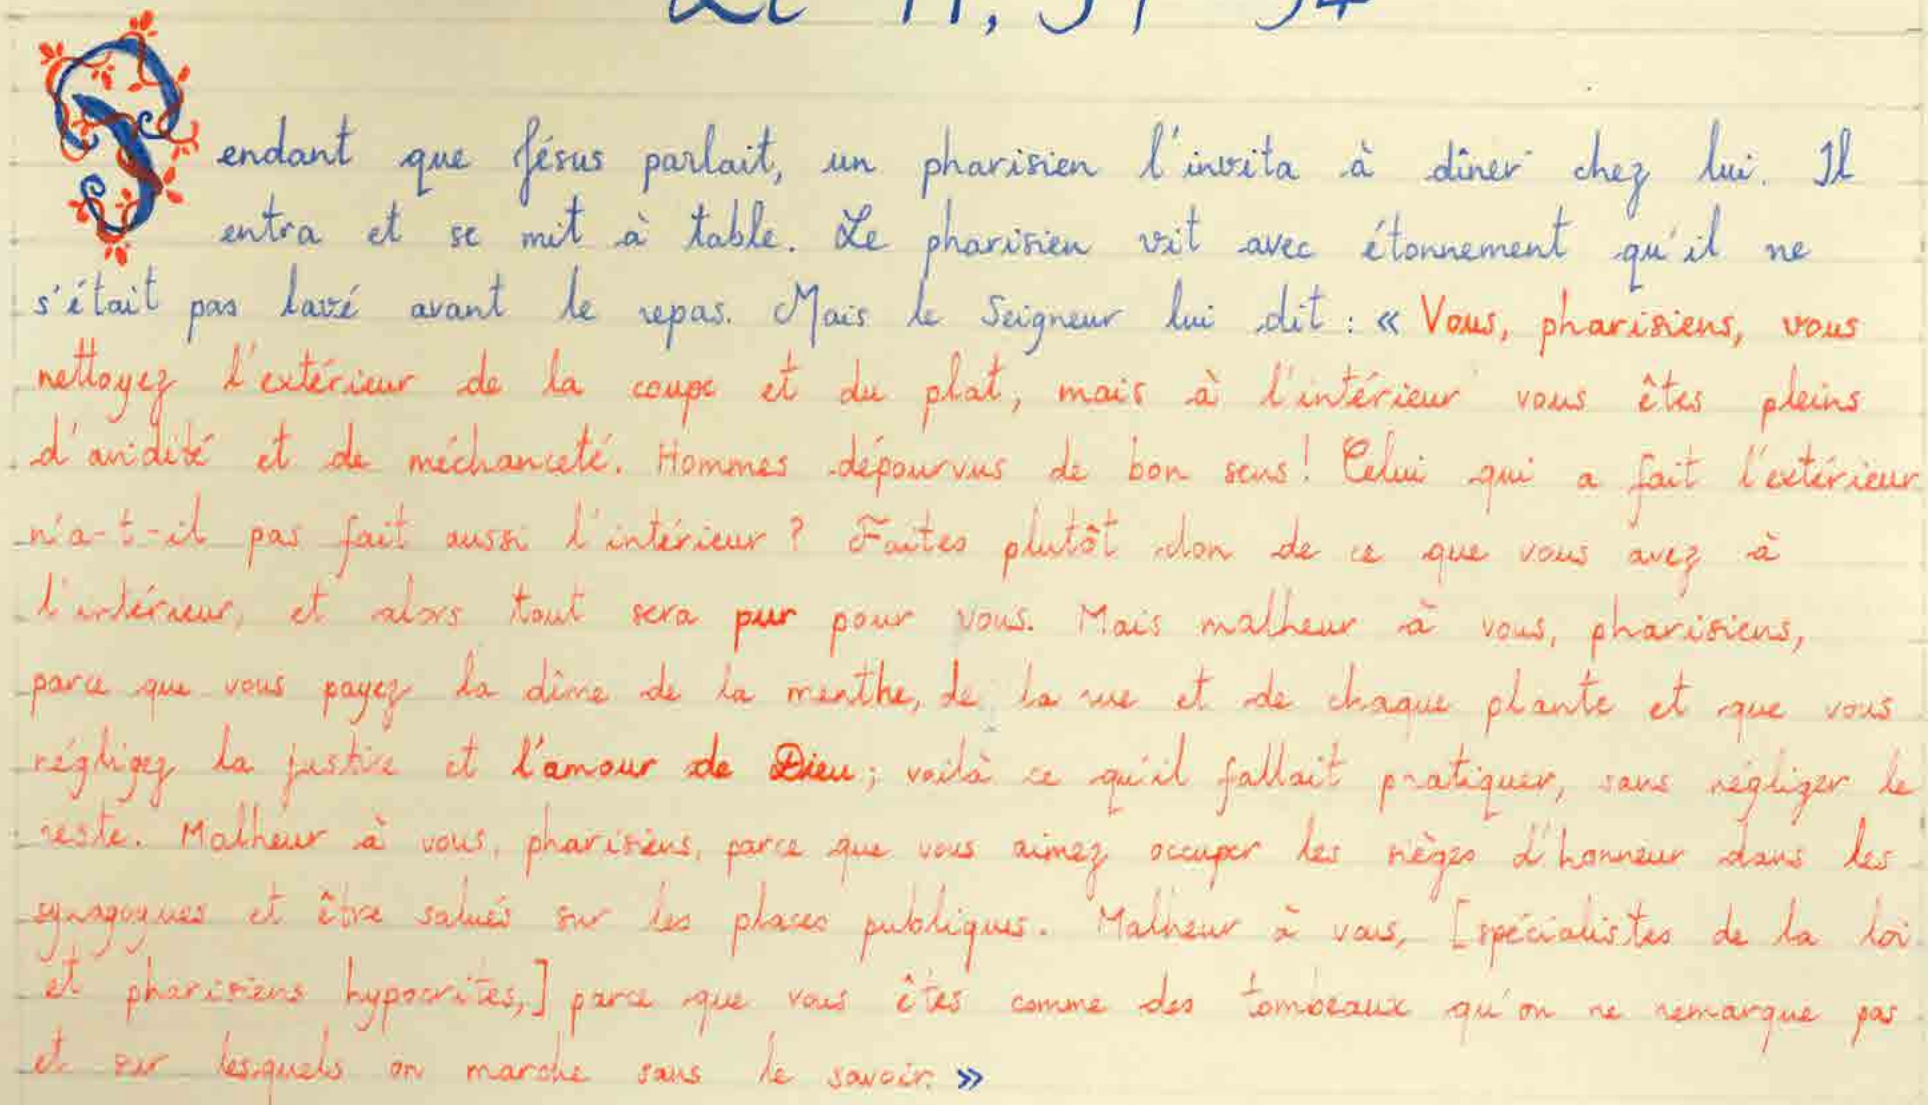 Lc 11, 37-54
Pendant que Jésus parlait, un pharisien l'invita à dîner chez lui. Il
entra et se mit à table. Le pharisien vit avec étonnement qu'il ne
s'était pas lavé avant le repas. Mais le Seigneur lui dit : « Vous, pharisiens, vous
nettoyez l'extérieur de la coupe et du plat, mais à l'intérieur vous êtes pleins
d'avidité et de méchanceté. Hommes dépourvus de bon sens ! Celui qui a fait l'extérieur
n'a-t-il pas fait aussi l'intérieur ? Faites plutôt don de ce que vous avez à
l'intérieur, et alors tout sera pur pour vous. Mais malheur à vous, pharisiens,
parce que vous payez la dîme de la menthe, de la rue et de chaque plante et que vous
négligez la justice et l'amour de Dieu ; voilà ce qu'il fallait pratiquer, sans négliger le
reste. Malheur à vous, pharisiens, parce que vous aimez occuper les sièges d'honneur dans les
synagogues et être salués sur les places publiques. Malheur à vous, [spécialistes de la loi
et pharisiens hypocrites,] parce que vous êtes comme des tombeaux qu'on ne remarque pas
et sur lesquels on marche sans le savoir. »